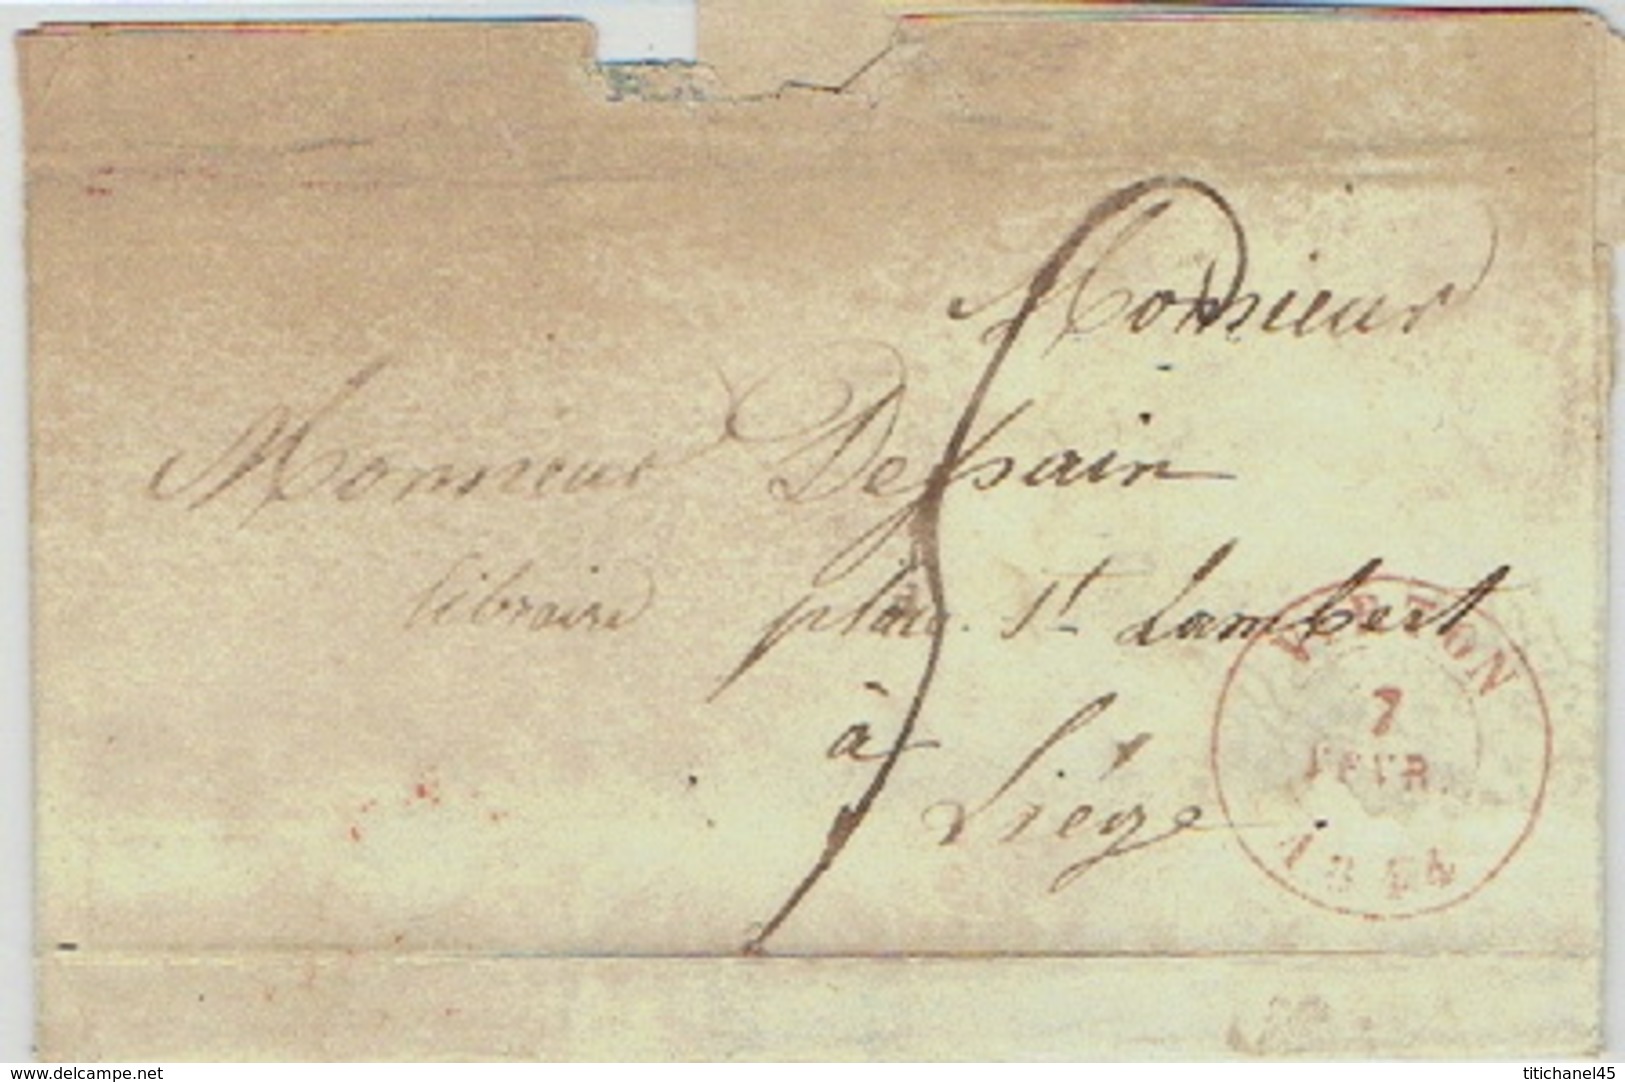 Monsieur
Monsieur Dessain
libraire place St Lambert
à
Liége
VIRTON
7
FEVR.
1844
www.delcampe.net
titichanel45